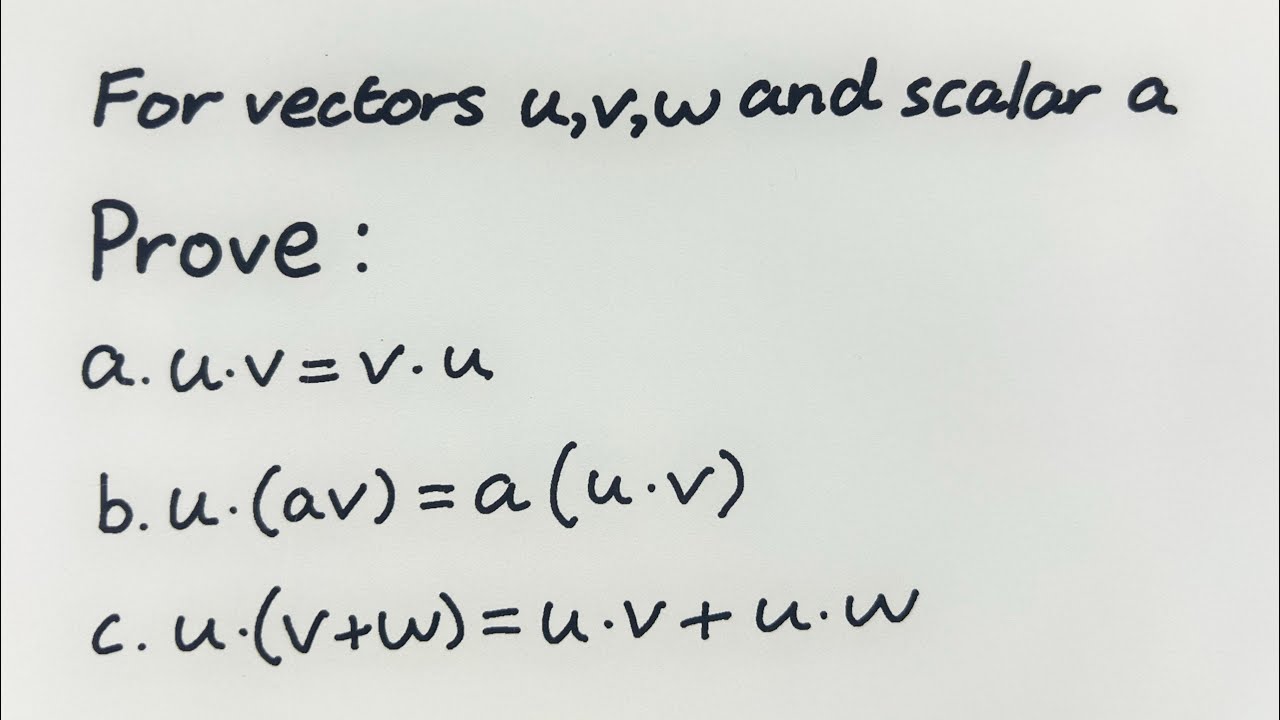 For vectors u,v,w and scalar a
Prove :
a. u·v = v·u
b. u·(av) = a(u·v)
c. u·(v+w) = u·v + u·w